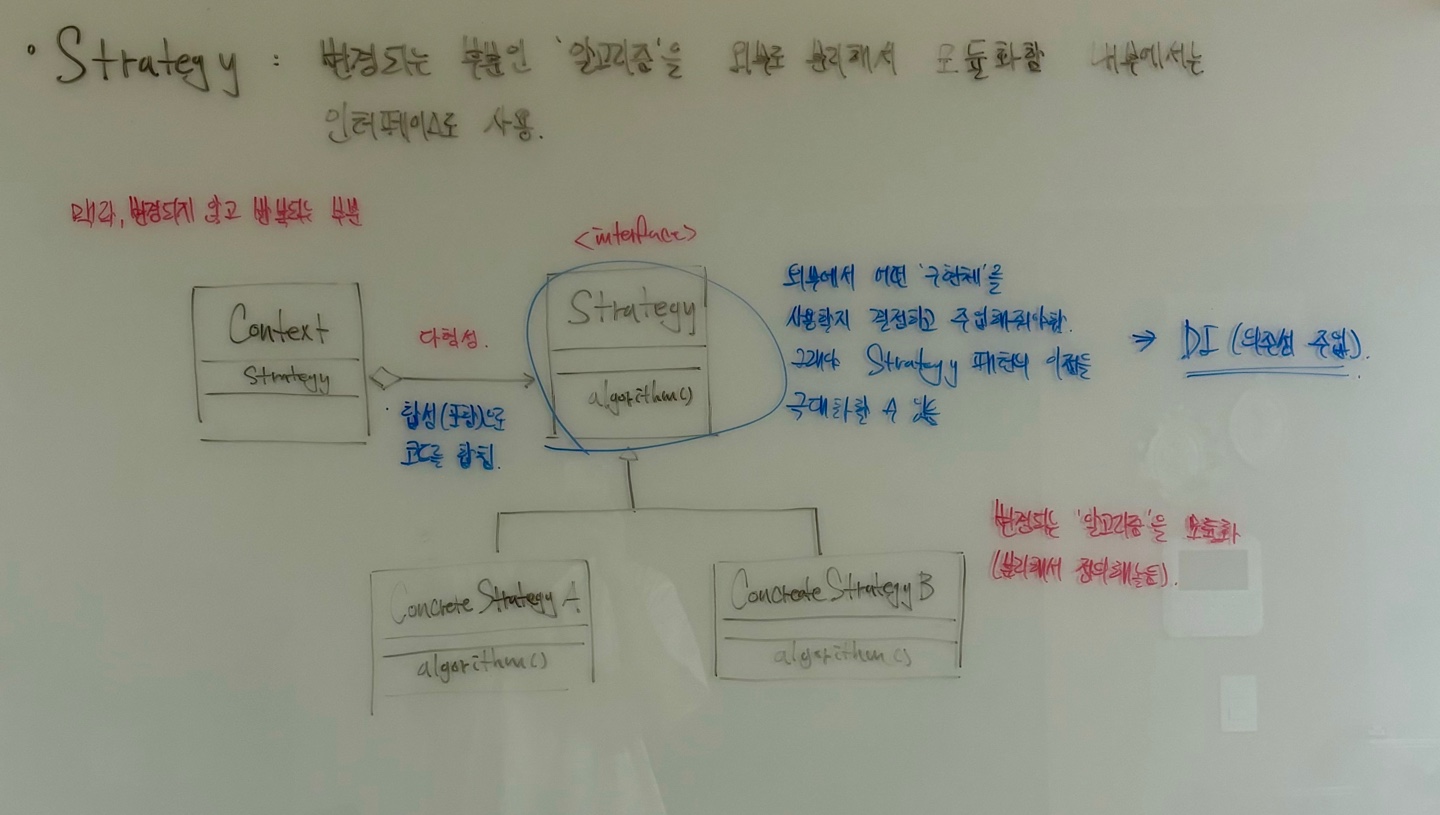 • Strategy : 변경되는 부분인 '알고리즘'을 외부로 분리해서 모듈화함 내부에서는
인터페이스로 사용.
맥락, 변경되지 않고 반복되는 부분
<interface>
Context
Strategy
다형성.
합성(포함)으로
코드를 합침.
Strategy
algorithm()
외부에서 어떤 '구현체'를
사용할지 결정하고 주입해줘야함.
그래야 Strategy 패턴의 이점을
극대화할 수 있음
⇒ DI (의존성 주입).
Concrete Strategy A
algorithm()
Concreate Strategy B
algorithm()
변경되는 '알고리즘'을 모듈화
(분리해서 정의해놓음).